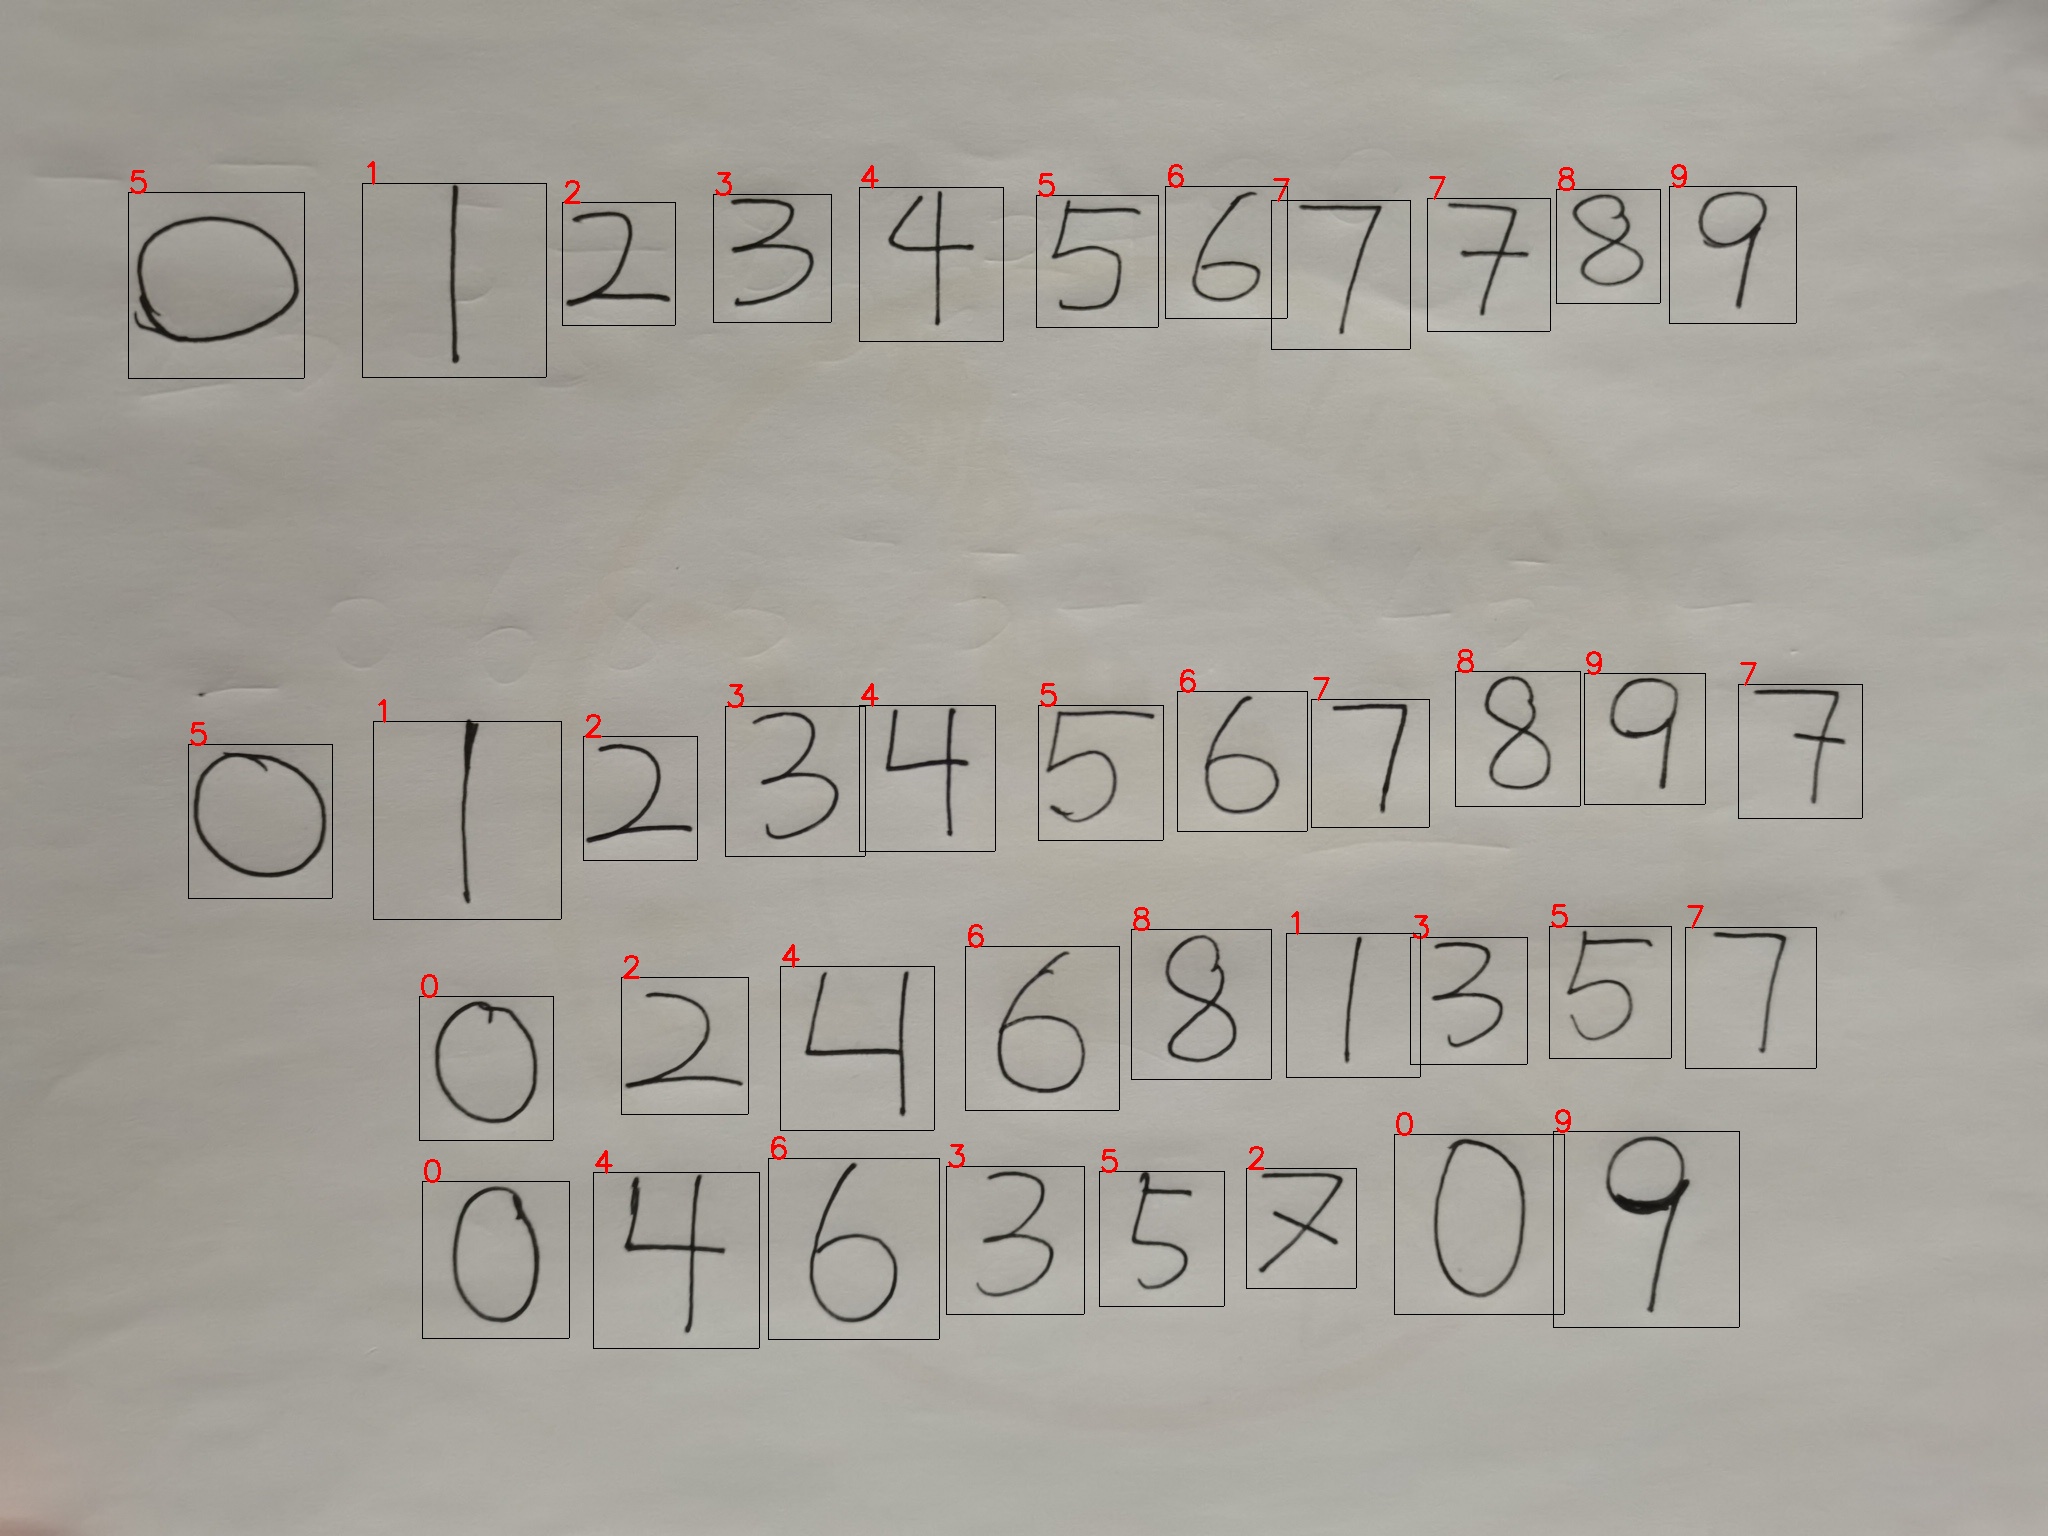 5 1 2 3 4 5 6 7 7 8 9
0 1 2 3 4 5 6 7 7 8 9
5 1 2 3 4 5 6 7 8 9 7
0 1 2 3 4 5 6 7 8 9 7
0 2 4 6 8 1 3 5 7
0 2 4 6 8 1 3 5 7
0 4 6 3 5 2 0 9
0 4 6 3 5 7 0 9